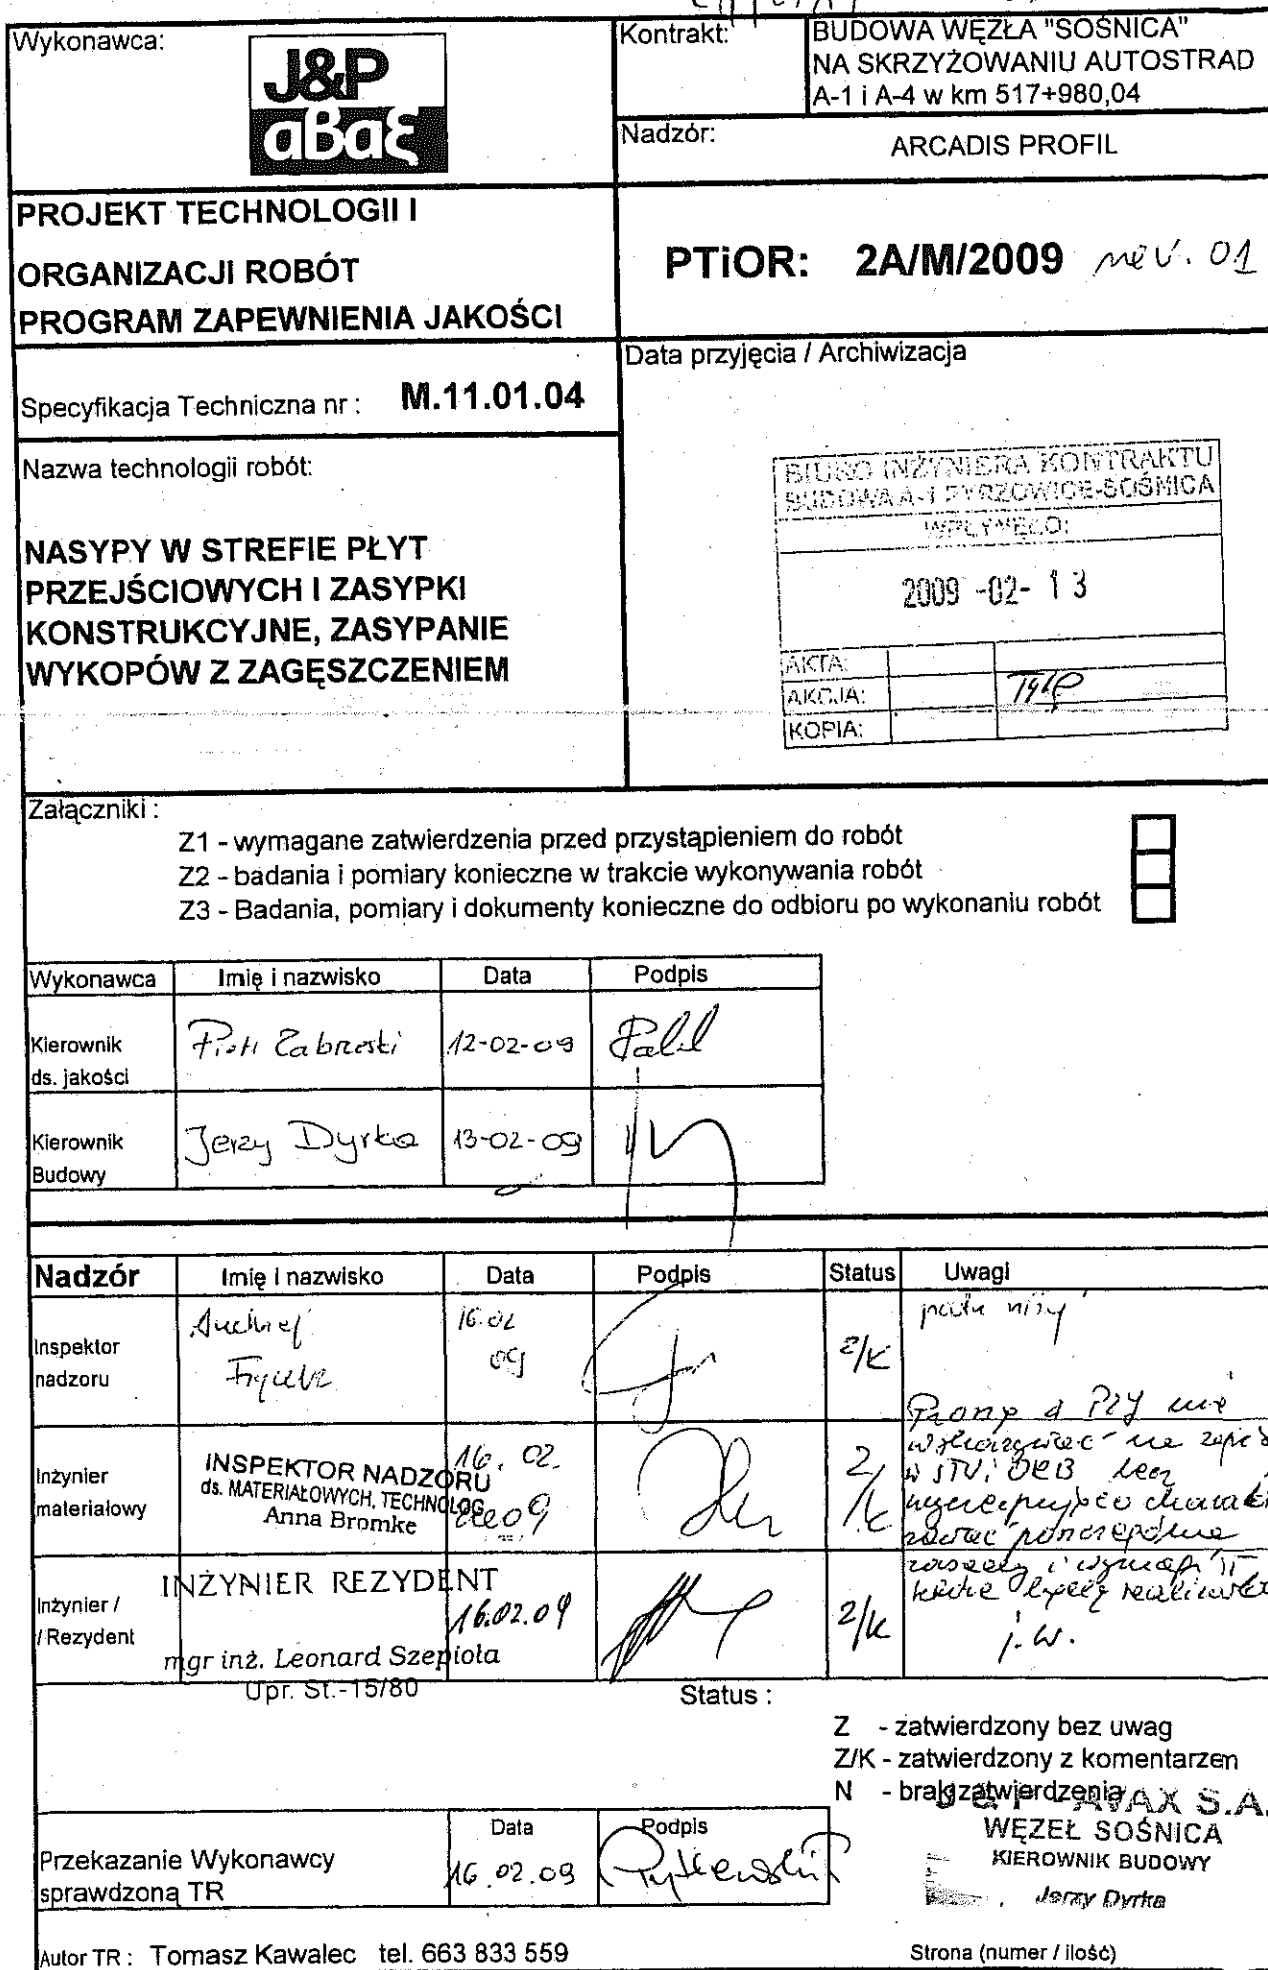 Wykonawca:
J&P
aBaξ
Kontrakt:
BUDOWA WĘZŁA "SOŚNICA"
NA SKRZYŻOWANIU AUTOSTRAD
A-1 i A-4 w km 517+980,04
Nadzór:
ARCADIS PROFIL
PROJEKT TECHNOLOGII I
ORGANIZACJI ROBÓT
PROGRAM ZAPEWNIENIA JAKOŚCI
PTiOR: 2A/M/2009 rev. 01
Specyfikacja Techniczna nr : M.11.01.04
Data przyjęcia / Archiwizacja
Nazwa technologii robót:
NASYPY W STREFIE PŁYT
PRZEJŚCIOWYCH I ZASYPKI
KONSTRUKCYJNE, ZASYPANIE
WYKOPÓW Z ZAGĘSZCZENIEM
BIURO INŻYNIERA KONTRAKTU
BUDOWA A-1 PYRZOWICE-SOŚNICA
WPŁYNĘŁO:
2009 -02- 13
AKTA:
AKCJA:
KOPIA:
Załączniki :
Z1 - wymagane zatwierdzenia przed przystąpieniem do robót
Z2 - badania i pomiary konieczne w trakcie wykonywania robót
Z3 - Badania, pomiary i dokumenty konieczne do odbioru po wykonaniu robót
Wykonawca Imię i nazwisko Data Podpis
Kierownik
ds. jakości
Piotr Zabrzeski 12-02-09
Kierownik
Budowy
Jerzy Dyrka 13-02-09
Nadzór Imię i nazwisko Data Podpis Status Uwagi
Inspektor
nadzoru
16.02
09
Z/K
Inżynier
materiałowy
INSPEKTOR NADZORU
ds. MATERIAŁOWYCH, TECHNOLOG
Anna Bromke
16. 02.
2009
Z/K
Proszę w PZJ nie
w STWiORB lecz
Inżynier /
/ Rezydent
INŻYNIER REZYDENT
mgr inż. Leonard Szepiota
Upr. St.-15/80
16.02.09
Z/K
j.w.
Status :
Z - zatwierdzony bez uwag
Z/K - zatwierdzony z komentarzen
N - brak zatwierdzenia
J & P - AVAX S.A.
WĘZEŁ SOŚNICA
KIEROWNIK BUDOWY
Jerzy Dyrka
Data Podpis
Przekazanie Wykonawcy
sprawdzoną TR
16.02.09
Autor TR : Tomasz Kawalec tel. 663 833 559
Strona (numer / ilość)